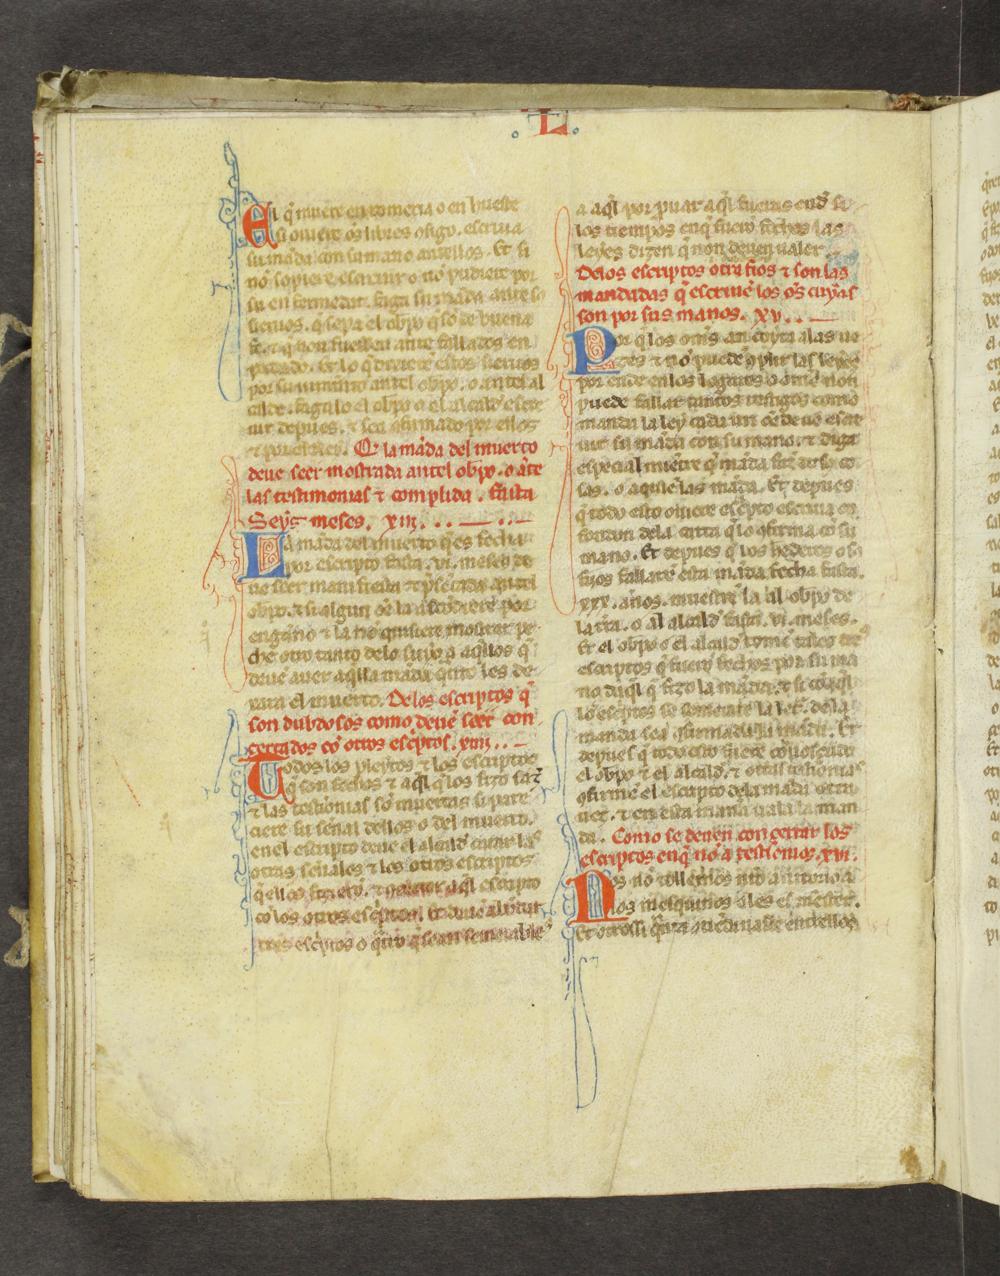 . L .
El q̃ muere en romeria o en hueste
si ouiere õs libres o sigo. escriua
su mãda con su mano ant ellos. Et si
nõ sopiere escriuir o nõ pudiere por
su enfermedat. faga su mãda ante so
sieruos. q̃ sepa el obpo q̃ sõ de buena
fe. q̃ non fuessen ante fallados en
pecado. Et lo q̃ dixieren estos sieruos
por su iuramẽto antel obpo. o antel al
calde. fagalo el obpo o el alcald escre
uir depues. & sea cõfirmado por ellos
& por el rey. Q̃ la mãda del muerto
deue seer mostrada antel obpo. o ãte
las testimonias & complida. fasta
Seys meses. xiii.
La mãda del muerto q̃ es fecha
por escripto fasta. vi. meses de
ue seer manifiesta & p̃sẽtada antel
obpo. & si algun õe la ascõdiere por
engãno & la nõ quisiere mostrar pe
che otro tanto delo suyo a aq̃llos q̃
deue auer aq̃lla mãda quito les de
xara el muerto. Delos escriptos q̃
son dubdosos como deuẽ seer con
certados cõ otros escp̃tos. xiiii.
Todos los pleytos & los escriptos
q̃ son fechos & aq̃l q̃ los fizo faz̃
& las testimonias sõ muertas si pare
ciere su señal dellos o del muerto.
en el escripto deue el alcald catar las
otras señales & los otros escriptos
q̃ ellos fizierõ. & aq̃l escripto
cõ los otros
tres escp̃tos o q̃tro q̃ sean semeiables
a aq̃l por prouar a aq̃l fueras end si
los tiempos enq̃ fuerõ fechos las
leyes dizen q̃ non deuen ualer
Delos escriptos otrossios & son las
mandadas q̃ escriuẽ los õs cuyas
son por sus manos. xv.
Por q̃ los om̃s an coyta alas ue
gadas & nõ puedẽ cõplir las leyes
por ende en los logares o omẽ non
puede fallar tantos testigos como
manda la ley cada un õe deue escre
uir su mãda con su mano. & diga
especial miẽtre q̃ mãda fazer de sus co
sas. o a quiẽ las mãda. Et depues
q̃ todo esto ouiere escp̃to escriua en
fondon dela carta q̃ lo cõfirma cõ su
mano. Et depues q̃ los herederos o so
fijos fallarẽ esta mãda fecha fasta.
xxx. años. muestrẽ la al obpo de
la tr̃a. o al alcald fasta. vi. meses.
Et el obpo o el alcald tome tales tres
escriptos q̃ fuerõ fechos por su ma
no daq̃l q̃ fizo la mãda. & si cõ aq̃l
los escp̃tos se semeiare la letra dela
manda sea cõfirmada la mãda. Et
depues q̃ todo esto fuere coñosçudo
el obpo & el alcald. & otras testimonias
cõfirmẽ el escripto dela mãda otra
uez. & en esta manera uala la man
da. Como se deuen concertar los
escriptos enq̃ nõ a testimonios. xvi.
Nos nõ tollemos nr̃o a
los mesquinos
Et otrossi